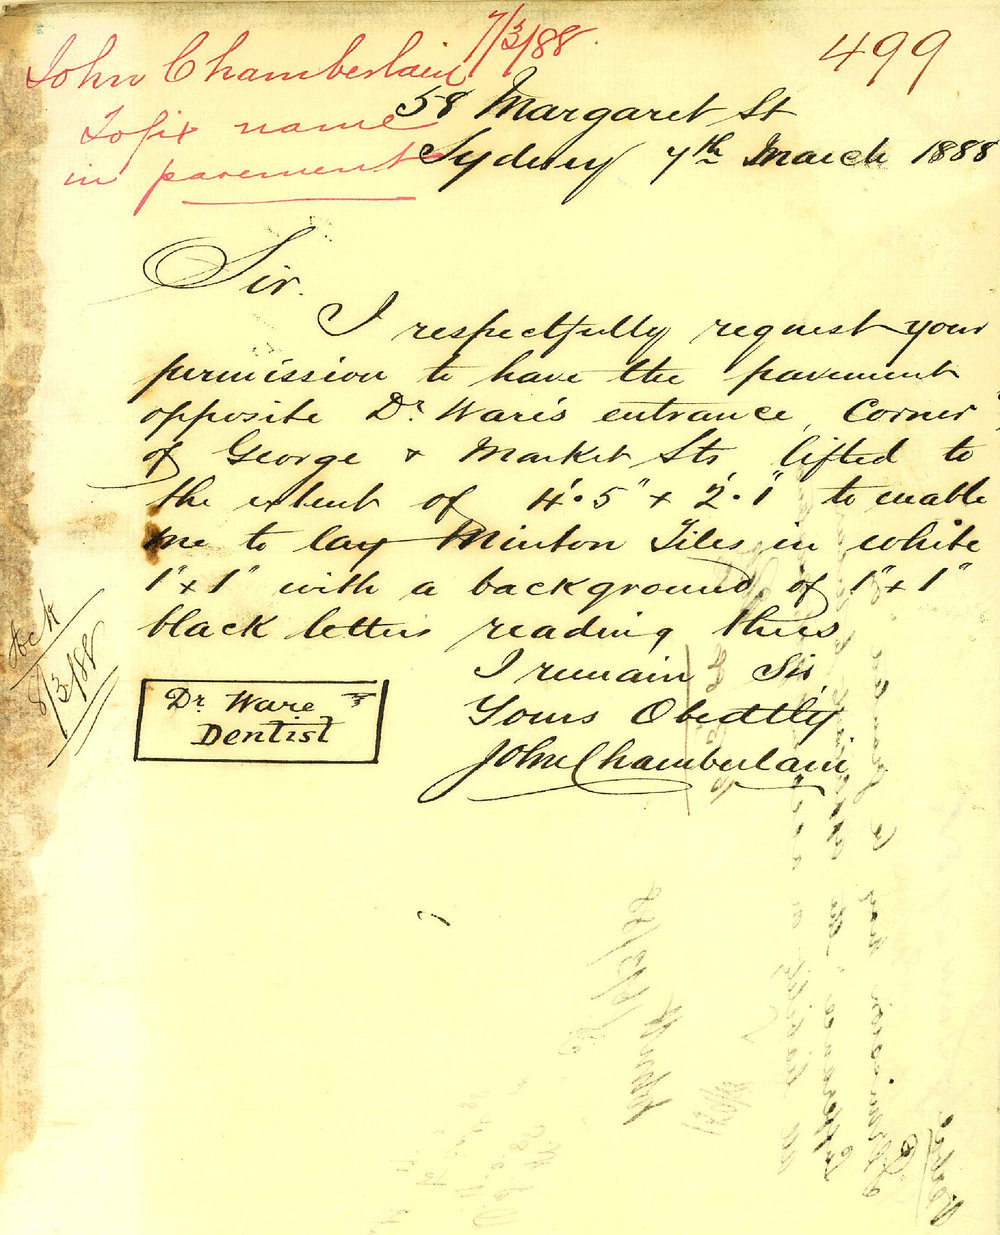 John Chamberlain 7/3/88.
To fix name
in pavement
499
58 Margaret St
Sydney 7th March 1888
Sir.
I respectfully request your
permission to have the pavement
opposite Dr Ware's entrance, Corner
of George & Market Sts, lifted to
the extent of 4'.5" x 2'.1" to enable
me to lay Minton Tiles in white
1" x 1" with a background of 1" x 1"
black letters reading thus
I remain Sir,
Yours Obedtly
John Chamberlain
Dr Ware
Dentist
Ack
8/3/88